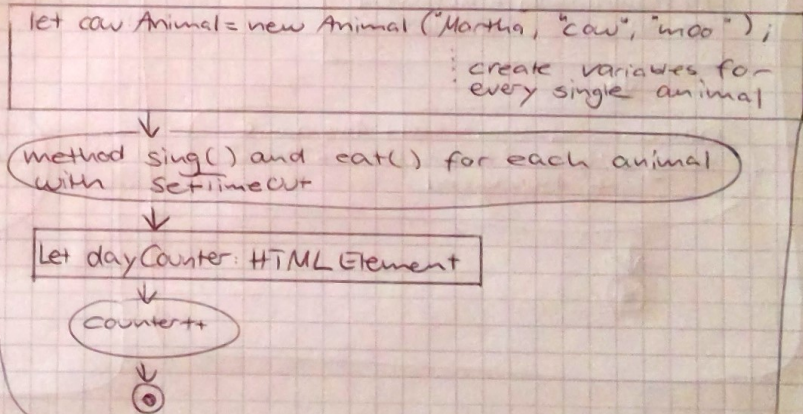 let cow Animal = new Animal ("Martha", "cow", "moo");
create variables for
every single animal
method sing() and eat() for each animal
with setTimeout
Let dayCounter: HTML Element
counter++